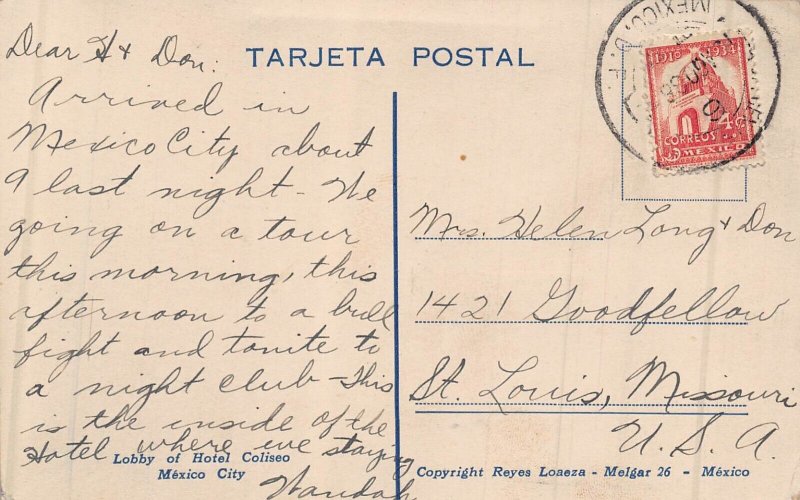 TARJETA POSTAL
Dear H & Don:
Arrived in
Mexico City about
9 last night - We
going on a tour
this morning, this
afternoon to a bull
fight and tonite to
a night club - This
is the inside of the
Hotel where we staying
Wandah
Lobby of Hotel Coliseo
México City
MEXICO, D. F.
1910 1934
4 ¢
CORREOS
MEXICO
Mrs. Helen Long & Don
1421 Goodfellow
St. Louis, Missouri
U. S. A.
Copyright Reyes Loaeza - Melgar 26 - México